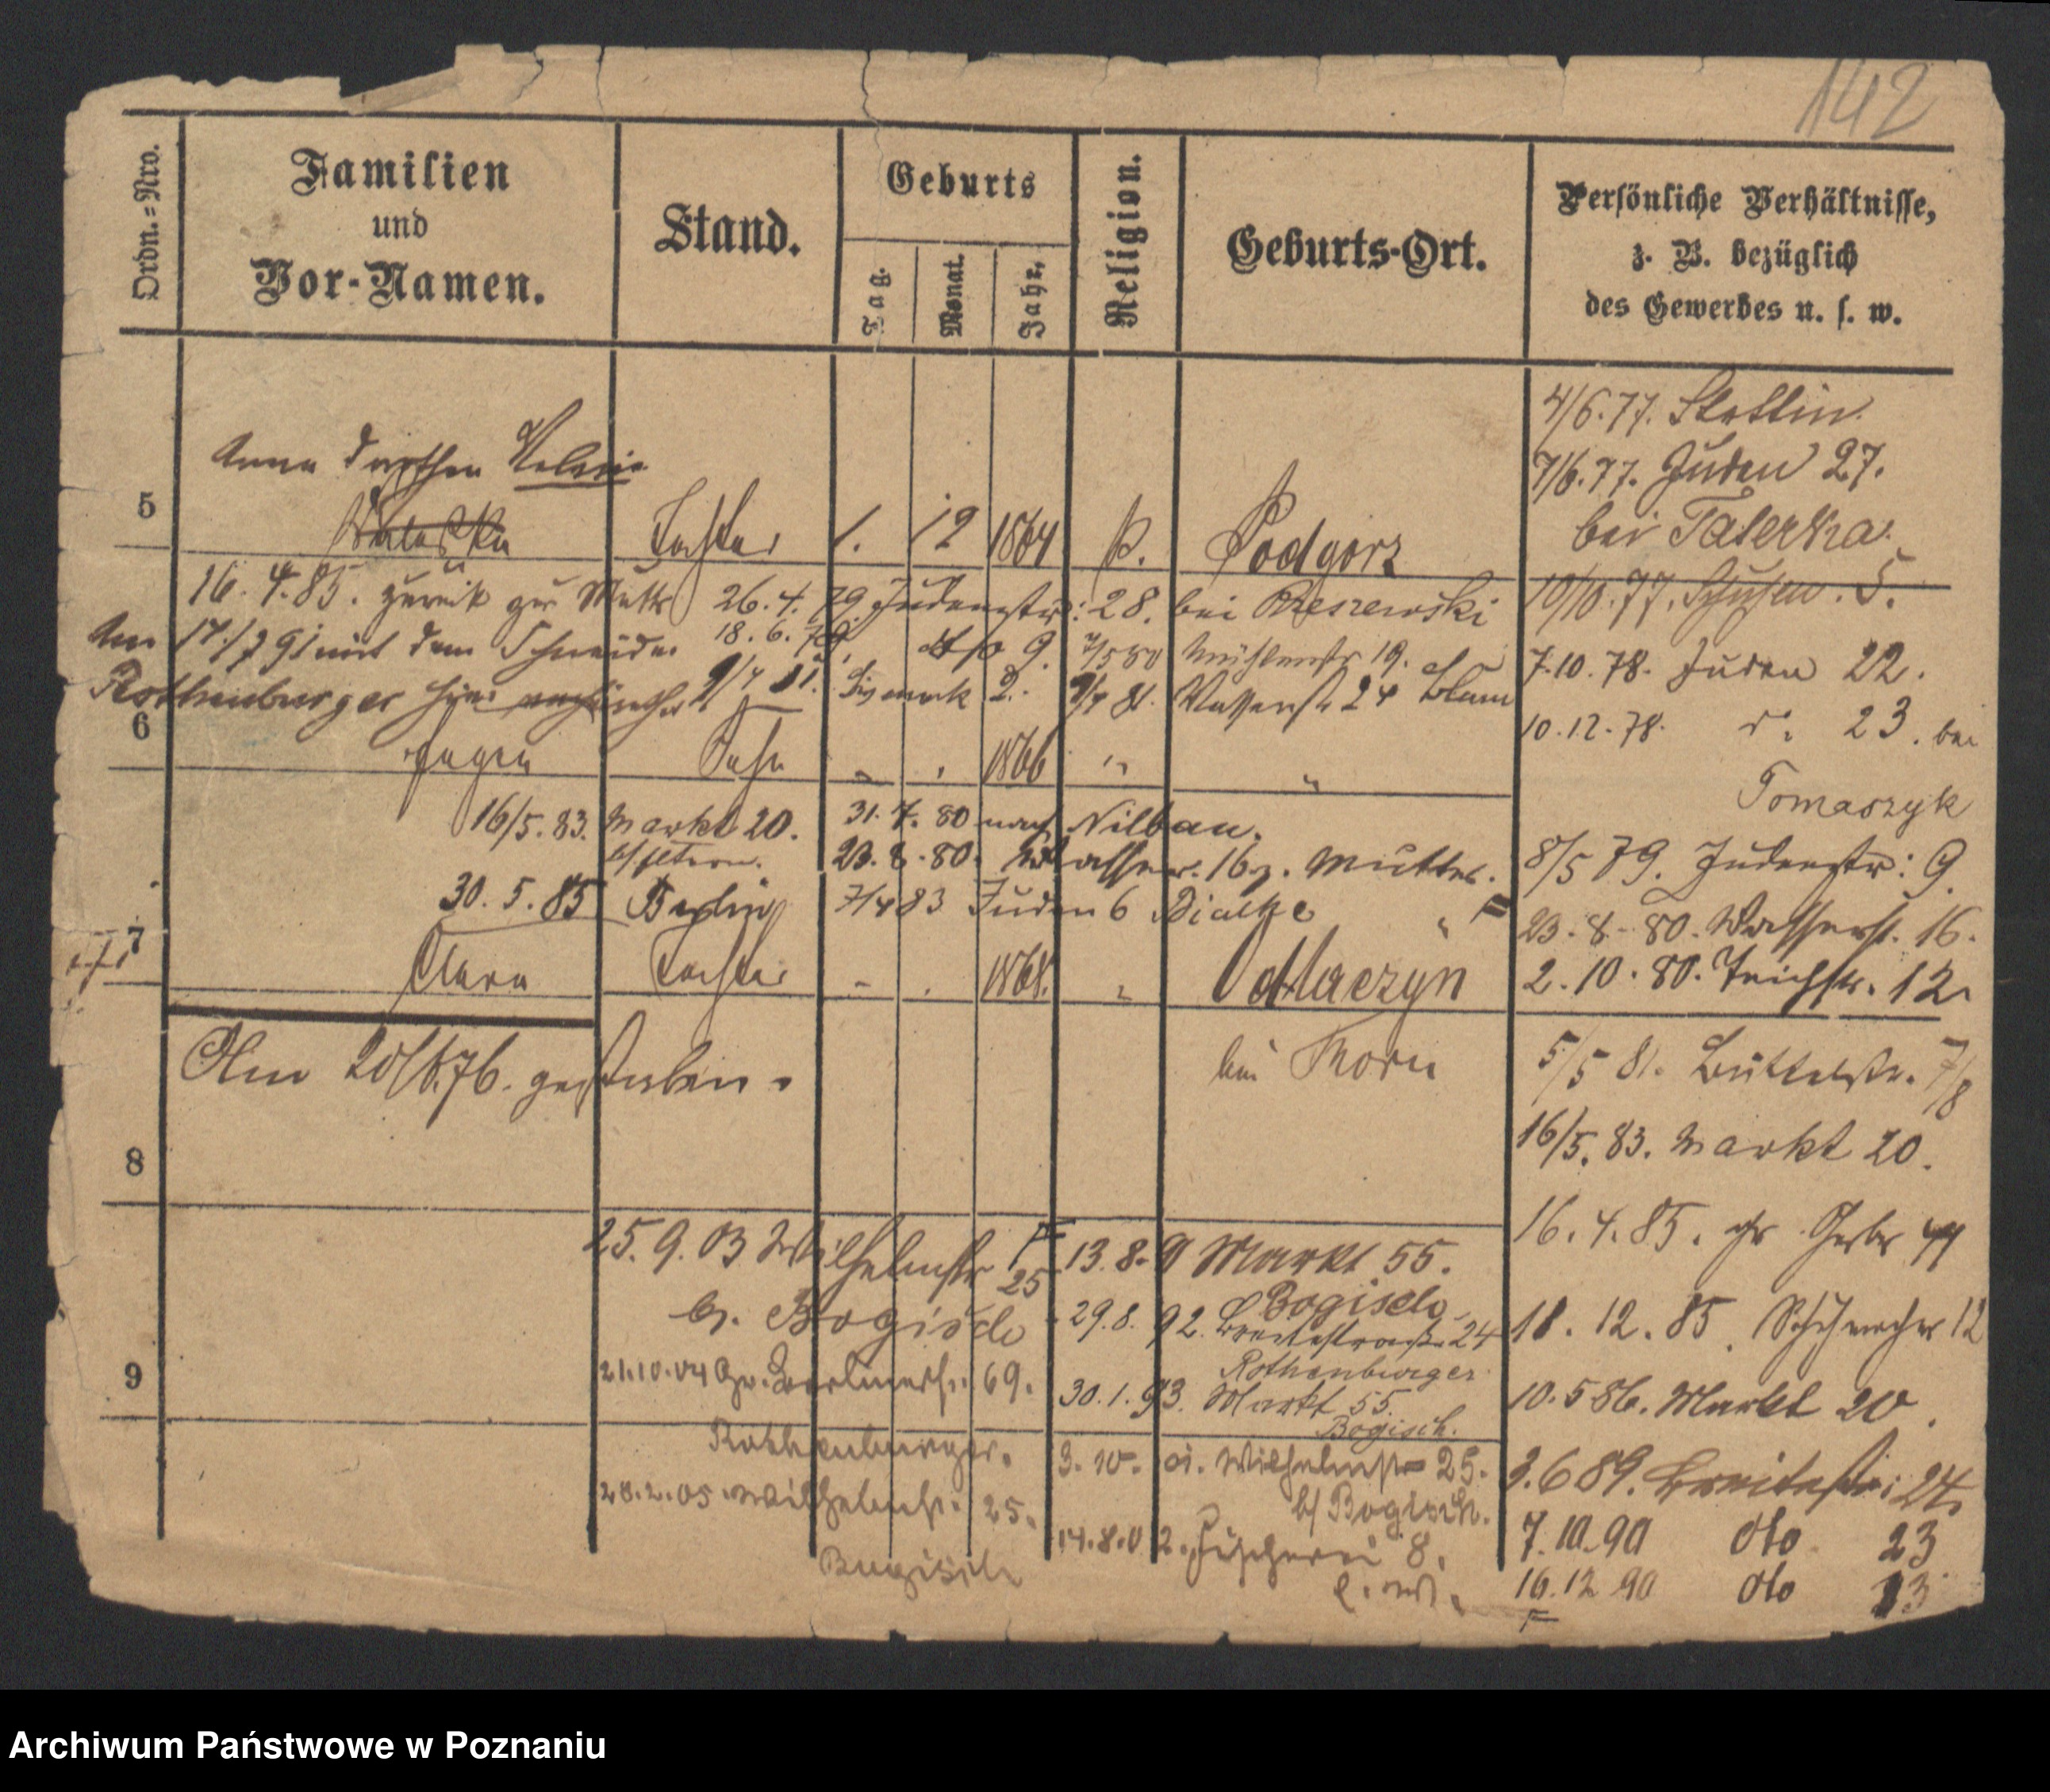 142
Ordn.=Nro.
Familien
und
Vor-Namen.
Stand.
Geburts
Tag.
Monat.
Jahr.
Religion.
Geburts-Ort.
Persönliche Verhältnisse,
z. B. bezüglich
des Gewerbes u. s. w.
Anna Dorothea
5
Tochter 1. 12 1864 Podgorz
16. 4. 85. zurück zur Mutter
Am 17./7 91 mit dem Schneider
Rothenburger hier
26. 4. 79. Judenstr: 28. bei
18. 6. 79. dto 9. 7/5 80 Mühlenstr 19.
Bismark 2. Wasserstr 24 Blum
6
Eugen Sohn " " 1866 " "
16/5. 83. Markt 20.
31. 7. 80 nach Nilbau.
23. 8. 80. Wasser. 16 z. Mutter.
30. 5. 85 Berlin
7/4 83 Juden 6
7
Clara Tochter " " 1868. " Odtloczyn
bei Thorn
Am 20/6.76. gestorben.
8
9
4/6. 77. Stettin.
7/6. 77. Juden 27.
bei Taterka.
10/10. 77. 5.
7. 10. 78. Juden 22.
10. 12. 78. do 23. bei
Tomaszyk
8/5 79. Judenstr: 9.
23. 8. 80. Wasserstr. 16.
2. 10. 80. Teichstr. 12.
5/5 81. Büttelstr. 7/8
16/5. 83. Markt 20.
16. 4. 85. gr. Gerber 44
18. 12. 85. Schuhmacher 12
10. 5 86. Markt 20.
3. 6 89. Breitestr: 24.
7. 10. 90 dto 23
16. 12 90 dto 13
25. 9. 03 Wilhelmstr 25
b. Bogisch
21.10.04 69.
Rothenburger.
28.2.05. Wilhelmstr. 25.
Bogisch
13. 8. 9 Markt 55.
Bogisch
29. 8. 92. Breitestraße 24
Rothenburger
30. 1. 93. Markt 55.
Bogisch.
3. 10. 01. Wilhelmstr 25.
b/ Bogisch.
14. 8. 02. Fischerei 8.
Archiwum Państwowe w Poznaniu